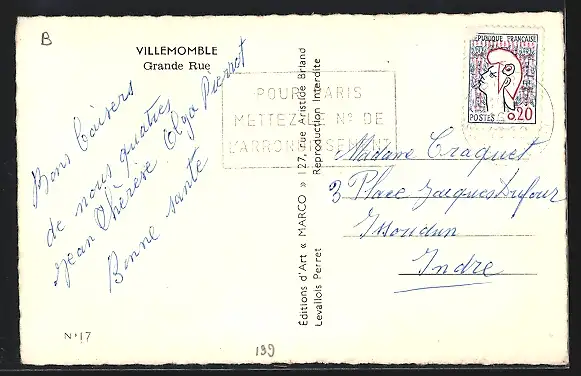 B
VILLEMOMBLE
Grande Rue
Bons baisers
de nous quatres
Jean Thérèse Olga Pierrot
Bonne santé
N° 17
139
Éditions d'Art « MARCO » 127, rue Aristide Briand
Levallois Perret
Reproduction Interdite
POUR PARIS
METTEZ LE N° DE
L'ARRONDISSEMENT
REPUBLIQUE FRANÇAISE
POSTES 0.20
Madame Craquet
3 Place Jacques Dufour
Issoudun
Indre